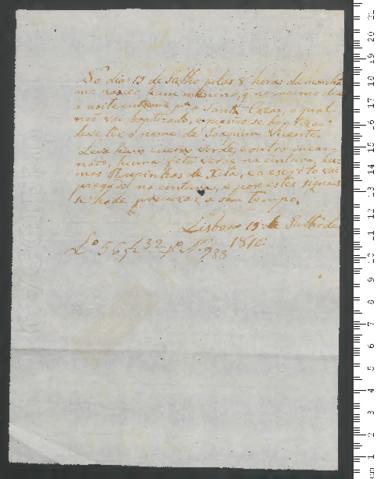 No dia 15 de Julho pelas 8 horas da manhã
me naceo hum menino, q no mesmo dia
a noite entrou p.ª a Santa Caza, o qual
não vai baptizado, e quero se
o nome de Joaquim Vicente
Leva hum cueiro verde, e outro encar-
nado, huma fita verde na cintura, hu-
mas Roupinhas de Xita, e a escrito vai
pregado na centura, e por estes signais
se hade procurar a seu tempo.
Lisboa 15 de Julho de
1810
Lº 56 f 32 Nº 988